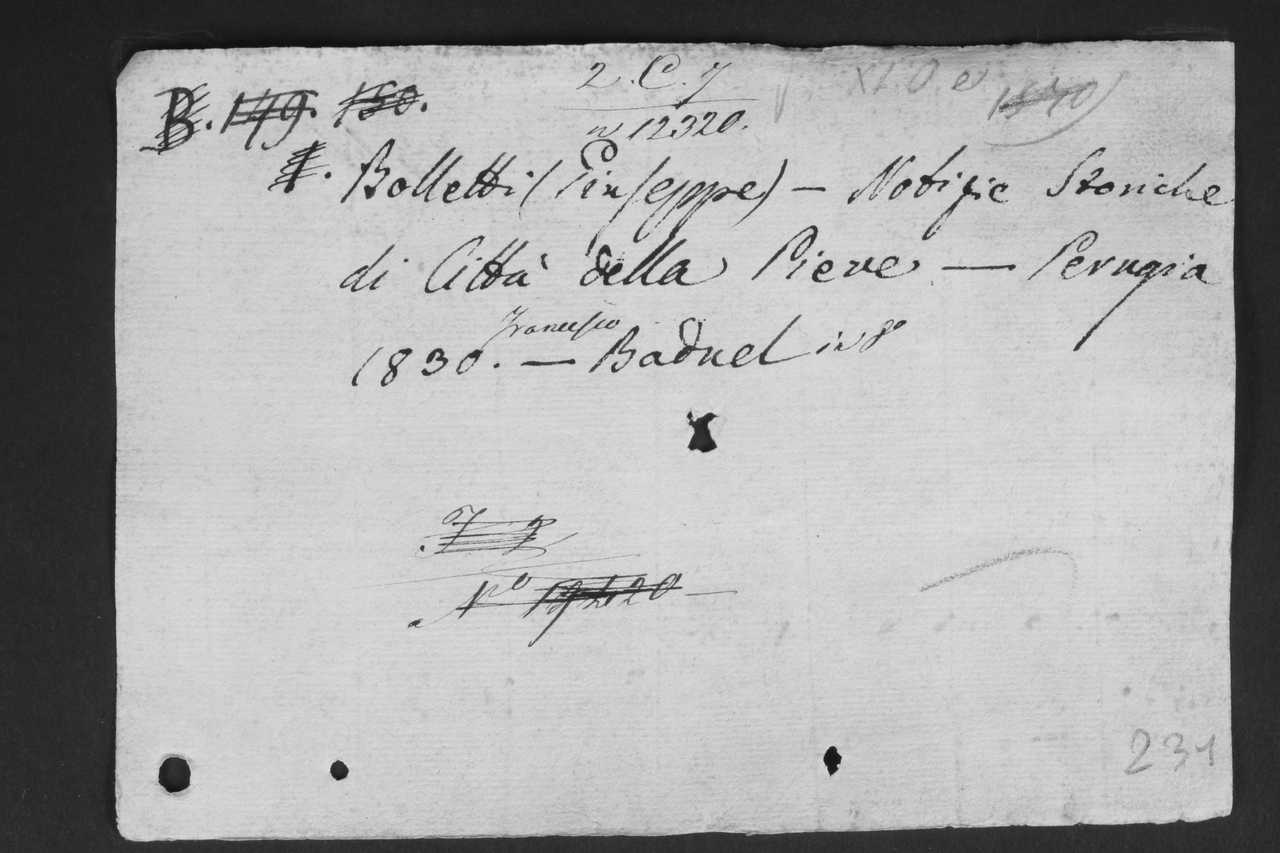 2. C. 7
n 12320.
B. 149. 150.
Bolletti (Giuseppe) — Notizie Storiche
di Città della Pieve — Perugia
Francesco
1830. — Baduel in 8°
N°
231